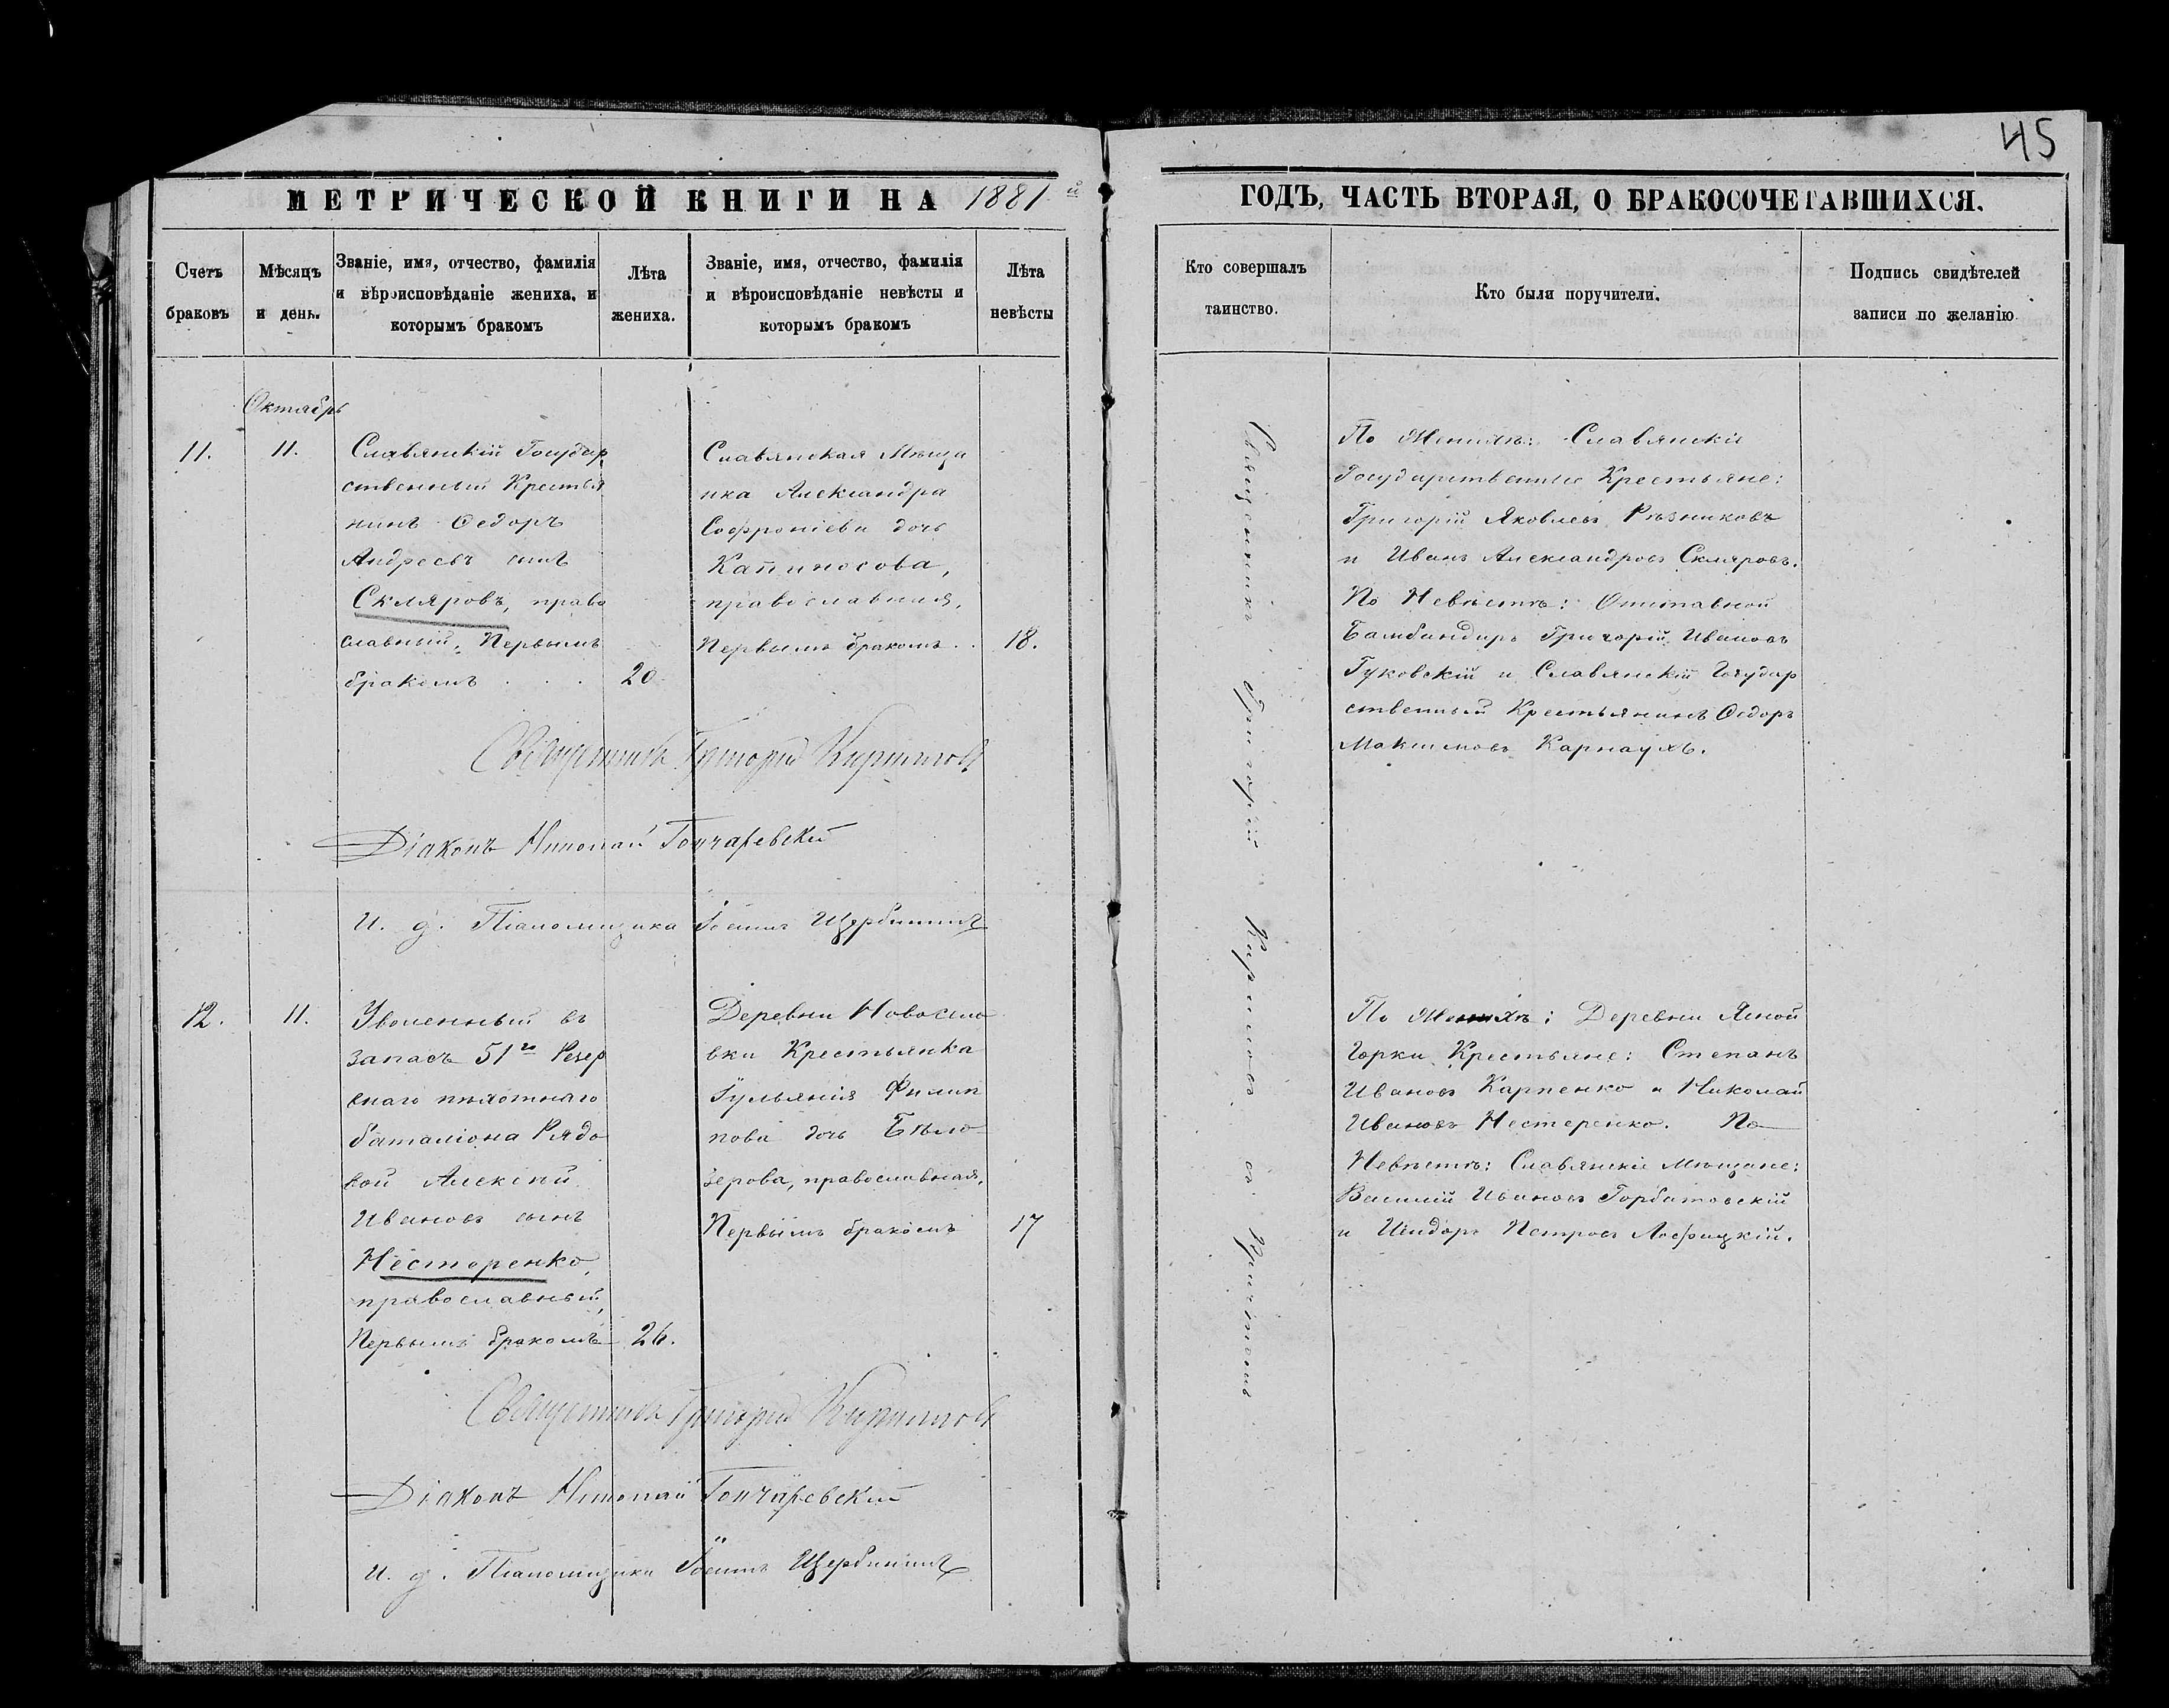 45
МЕТРИЧЕСКОЙ КНИГИ НА 1881 й
ГОДЪ, ЧАСТЬ ВТОРАЯ, О БРАКОСОЧЕТАВШИХСЯ.
Счетъ
браковъ
Мѣсяцъ
и день.
Званіе, имя, отчество, фамилія
и вѣроисповѣданіе жениха, и
которымъ бракомъ
Лѣта
жениха.
Званіе, имя, отчество, фамилія
и вѣроисповѣданіе невѣсты и
которымъ бракомъ
Лѣта
невѣсты
Кто совершалъ
таинство.
Кто были поручители.
Подпись свидѣтелей
записи по желанію
Октябрь
11.
11.
Славянскій Государ
ственный Крестья
нинъ Ѳедоръ
Андреевъ сынъ
Скляровъ, право
славный, Первымъ
бракомъ . . .
20
Славянская Мѣща
нка Александра
Софроніева дочь
Капиносова,
православная,
Первымъ бракомъ . .
18.
Священникъ Григорій Кириловъ съ Причтомъ
По Женихѣ: Славянскіе
Государственные Крестьяне:
Григорій Яковлевъ Рѣзниковъ
и Иванъ Александровъ Скляровъ.
По Невѣстѣ: Отставной
Бамбандиръ Григорій Ивановъ
Гуковскій и Славянскій Государ
ственный Крестьянинъ Ѳедоръ
Максимовъ Карнаухъ.
Священникъ Григорій Кириловъ
Діаконъ Николай Гончаревскій
И. д. Псаломщика Іосифъ Щербининъ
12.
11.
Уволенный въ
запасъ 51го Резер
внаго пѣхотнаго
баталіона Рядо
вой Алексѣй
Ивановъ сынъ
Несторенко,
православный,
Первымъ бракомъ
26.
Деревни Новосело
вки Крестьянка
Гульянія Филип
пова дочь Бѣло
зерова, православная,
Первымъ бракомъ
17
По Женихѣ: Деревни Ясной
Горки Крестьяне: Степанъ
Ивановъ Карпенко и Николай
Ивановъ Нестеренко. По
Невѣстѣ: Славянскіе Мѣщане:
Василій Ивановъ Горбатовскій
и Исидоръ Петровъ
Священникъ Григорій Кириловъ
Діаконъ Николай Гончаревскій
И. д. Псаломщика Іосифъ Щербининъ